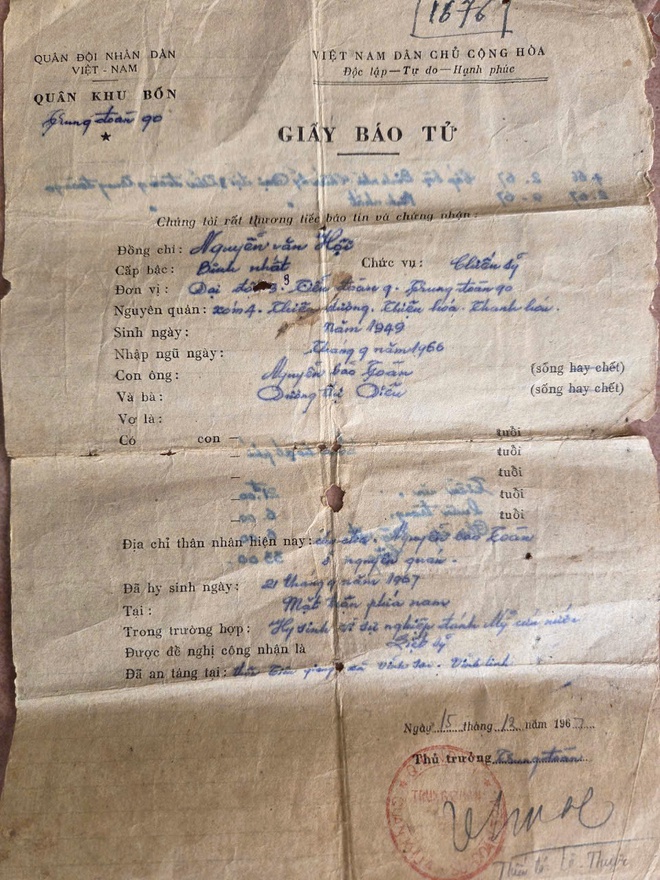 1676
QUÂN ĐỘI NHÂN DÂN
VIỆT - NAM
QUÂN KHU BỐN
Trung đoàn 90
VIỆT NAM DÂN CHỦ CỘNG HÒA
Độc lập — Tự do — Hạnh phúc
GIẤY BÁO TỬ
Chúng tôi rất thương tiếc báo tin và chứng nhận:
Đồng chí: Nguyễn văn Hội
Cấp bậc: Binh nhất Chức vụ: Chiến sỹ
Đơn vị: Đại đội 3. Tiểu đoàn 9. Trung đoàn 90
Nguyên quán: xóm 4. Thiệu dương. Thiệu hóa. Thanh hóa.
Sinh ngày: năm 1949
Nhập ngũ ngày: Tháng 9 năm 1966
Con ông: Nguyễn bảo Toán (sống hay chết)
Và bà: Dương thị Diễu (sống hay chết)
Vợ là:
Có con — tuổi
— tuổi
— tuổi
— tuổi
— tuổi
Địa chỉ thân nhân hiện nay: Nguyễn bảo Toán
ở nguyên quán.
Đã hy sinh ngày: 21 tháng 9 năm 1967
Tại: Mặt trận phía nam
Trong trường hợp: Hy sinh vì sự nghiệp đánh Mỹ cứu nước
Được đề nghị công nhận là Liệt sỹ
Đã an táng tại: xã Vĩnh Vĩnh linh
Ngày 15 tháng 12 năm 1967
Thủ trưởng Trung đoàn
TRUNG ĐOÀN